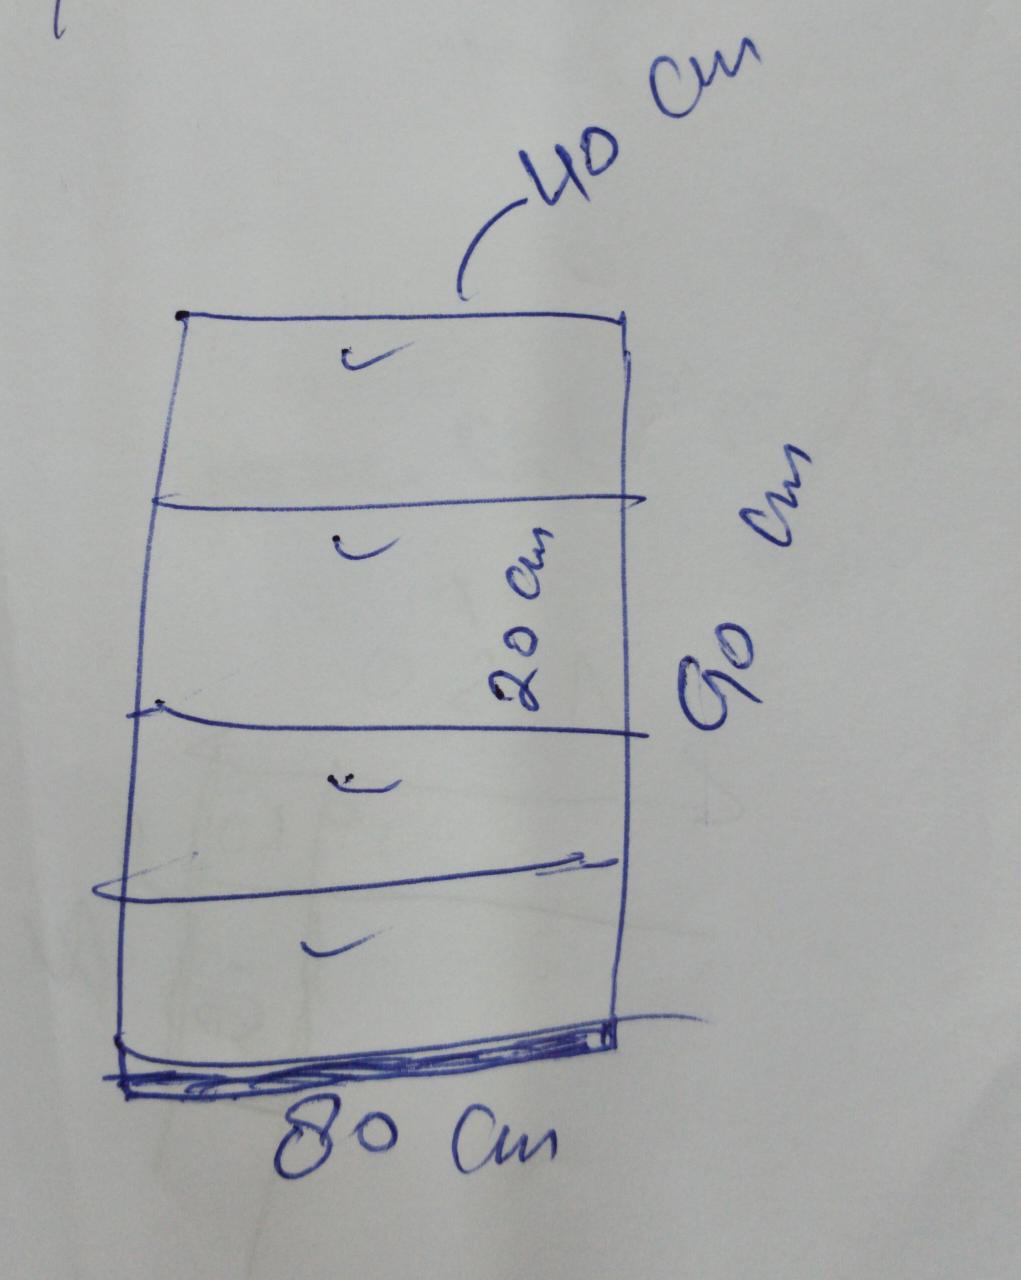 40 cm
20 cm
90 cm
80 cm